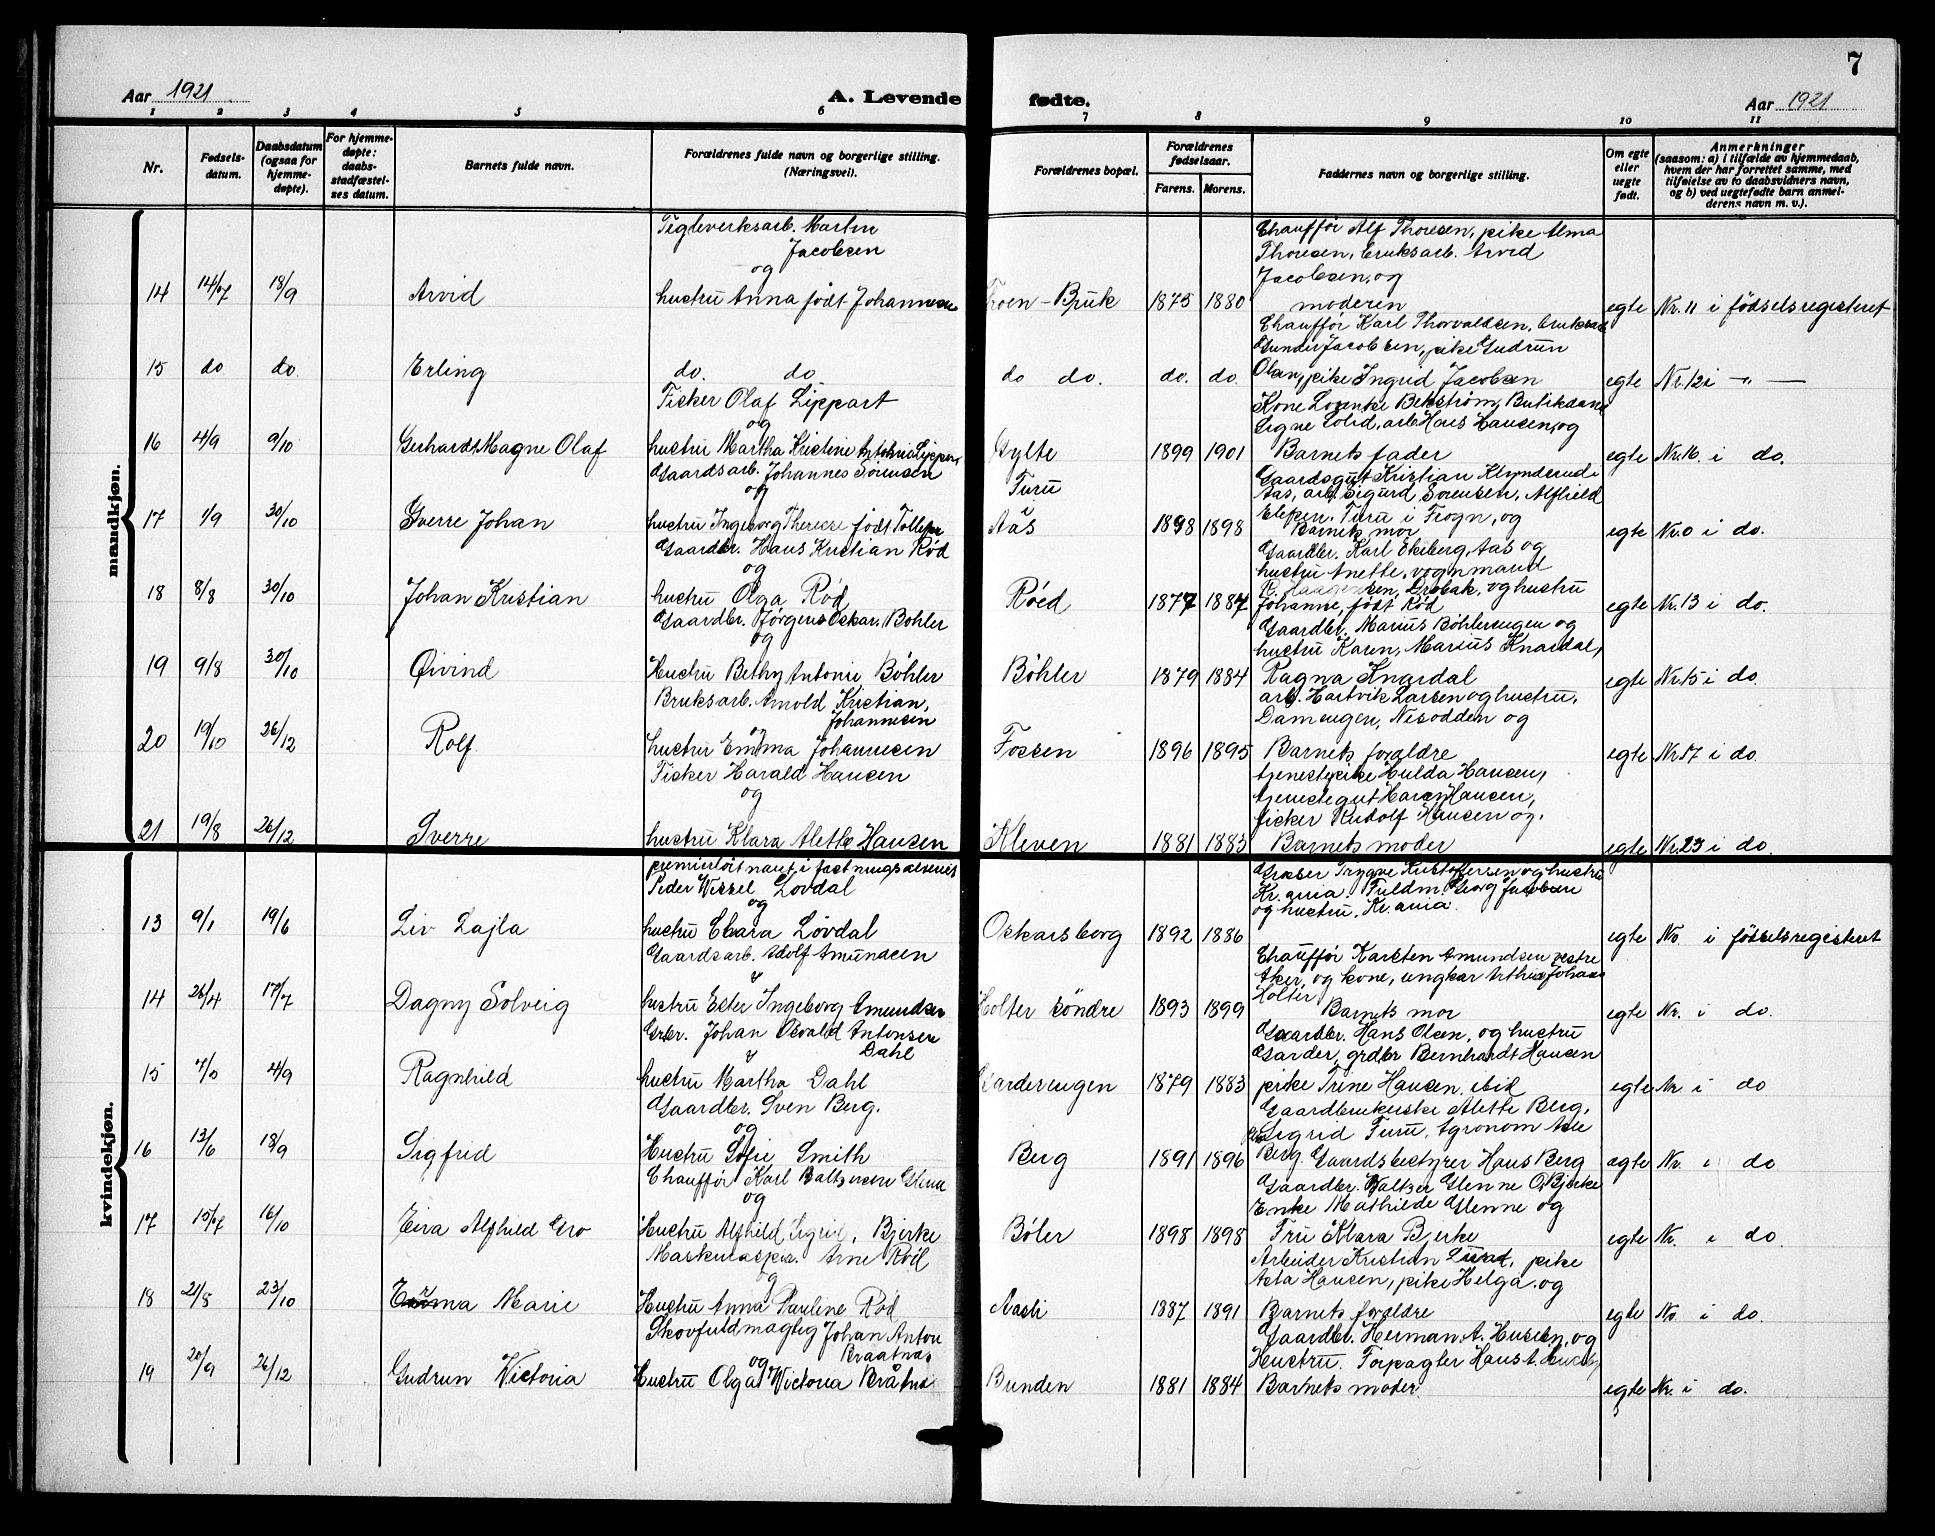 7
Aar 1921
A. Levende fødte.
Aar 1921
1 2 3 4 5 6 7 8 9 10 11
Nr.
Fødsels-
datum.
Daabsdatum
(ogsaa for
hjemme-
døpte).
For hjemme-
døpte:
daabs-
stadfæstel-
ses datum.
Barnets fulde navn.
Forældrenes fulde navn og borgerlige stilling.
(Næringsvei).
Forældrenes bopæl.
Forældrenes
fødselsaar.
Farens. Morens.
Faddernes navn og borgerlige stilling.
Om egte
eller
uegte
født.
Anmerkninger
(saasom: a) i tilfælde av hjemmedaab,
hvem der har forrettet samme, med
tilføielse av to daabsvidners navn,
og b) ved uegtefødte barn anmel-
derens navn m. v.).
mandkjøn.
Tegleverksarb. Martin
Jacobsen
og
14 14/7 18/9 Arvid hustru Anna født Johannesen
Bruk 1875 1880
Chauffør Alf Thoresen, pike Alma
Thoresen, bruksarb. Arvid
Jacobsen, og
moderen
egte Nr. 11 i fødselsregisteret
15 do do. Erling do. do do do. do. do
Chauffør Karl Thorvaldsen,
Gunder Jacobsen, pike Gudrun
Olsen, pike Ingrid Jacobsen
egte Nr. 12 i -"-
Fisker Olaf Lippart
og
16 4/9 9/10 Gerhardt Magne Olaf hustru Martha Kristine
Gylte 1899 1901
Signe Solid, arb. Hans Hansen, og
Barnets fader
egte Nr. 16. i do.
Gaardsarb. Johannes Sørensen
og
17 1/9 30/10 Sverre Johan hustru Ingeborg Therese født
Turu
i
Aas 1898 1898
Gaardsgut Kristian
Aas, arb. Sigurd Sørensen, Alfhild
Turu i Frogn, og
Barnets mor
egte Nr. 0 i do.
Gaardbr. Hans Kristian Rød
og
18 8/8 30/10 Johan Kristian hustru Olga Rød
Røed 1877 1887
Gaardbr. Karl Ekeberg, Aas og
hustru Anette, vognmand
Drøbak, og hustru
Johanne, født Rød
egte Nr. 13 i do.
Gaardbr. Jørgen Oskar Bøhler
og
19 9/8 30/10 Øivind Hustru Bethy Antonie Bøhler
Bøhler 1879 1884
Gaardbr. Marius Bøhlerengen og
hustru Karen, Marius Knardal,
Ragna Knardal
egte Nr. 15 i do
Bruksarb. Arnold Kristian,
Johannesen
20 19/10 26/12 Rolf. hustru Emma Johannesen
Fossen 1896 1895
arb. Hartvik Larsen og hustru,
Damengen, Nesodden og
Barnets forældre
egte Nr. 17 i do.
Fisker Harald Hansen
og
21 19/8 26/12 Sverre hustru Klara Alette Hansen
Kleven 1881 1883
tjenestepike Hulda Hansen,
tjenestegut Harry Hansen,
fisker Rudolf Hansen og.
Barnets moder
egte Nr. 23 i do.
kvindekjøn.
Peder Wessel Løvdal
og
13 9/1 19/6 Liv Lajla hustru Chara Løvdal
Oskarsborg 1892 1886
Trygve Kristoffersen og hustru
Kr.ania. Fuldm. Georg Jacobsen
og hustru, Kr.ania.
egte No i fødselsregisteret
Gaardsarb. Adolf Amundsen
14 26/4 17/7 Dagny Solveig hustru Ester Ingeborg Amundsen
Holter søndre 1893 1899
Chauffør Karsten Amundsen vestre
Aker, og kone, ungkar
Holter
Barnets mor
egte Nr. i do.
Johan Osvald Antonsen
Dahl
15 4/9 Ragnhild hustru Martha Dahl
Garderengen 1879 1883
Gaardbr. Hans Olsen, og hustru
Garder, grdbr Bernhardt Hansen
pike Trine Hansen ibid
egte Nr. i do
Gaardbr. Sven Berg.
og
16 13/6 18/9 Sigfrid Hustru Sofie Smith
Berg 1891 1896
Alette Berg,
Sigrid Turu, Agronom
Berg, Gaardsbestyrer Hans Berg
egte Nr. i do
Chauffør Karl Baltzersen Glenne
og
17 15/7 16/10 Eira Alfhild Gro Hustru Alfhild Sigrid, Bjerke
Bøler 1898 1898
Gaardbr. Baltzer Glenne O, Bjerke
Enke Mathilde Glenne og
Fru Klara Bjerke
egte Nr. i do.
Arne Rød
og
18 21/8 23/10 Emma Marie Hustru Anna Pauline Rød
Aasli 1887 1891
Arbeider Kristian pike
Asta Hansen, pike Helga og
Barnets forældre
egte No i do.
Skovfuldmægtig Johan Anton
Braatnas
og
19 20/9 26/12 Gudrun Victoria Hustru Olga Victoria
Bunden 1881 1884
Gaardbr. Herman A. og
Hustru. Forpagter Hans A.
Barnets moder
egte Nr. i do.